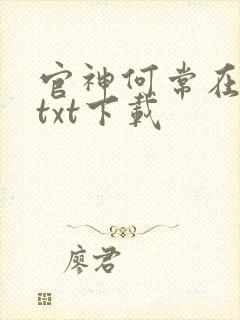 官神何常在
txt下載
廖君